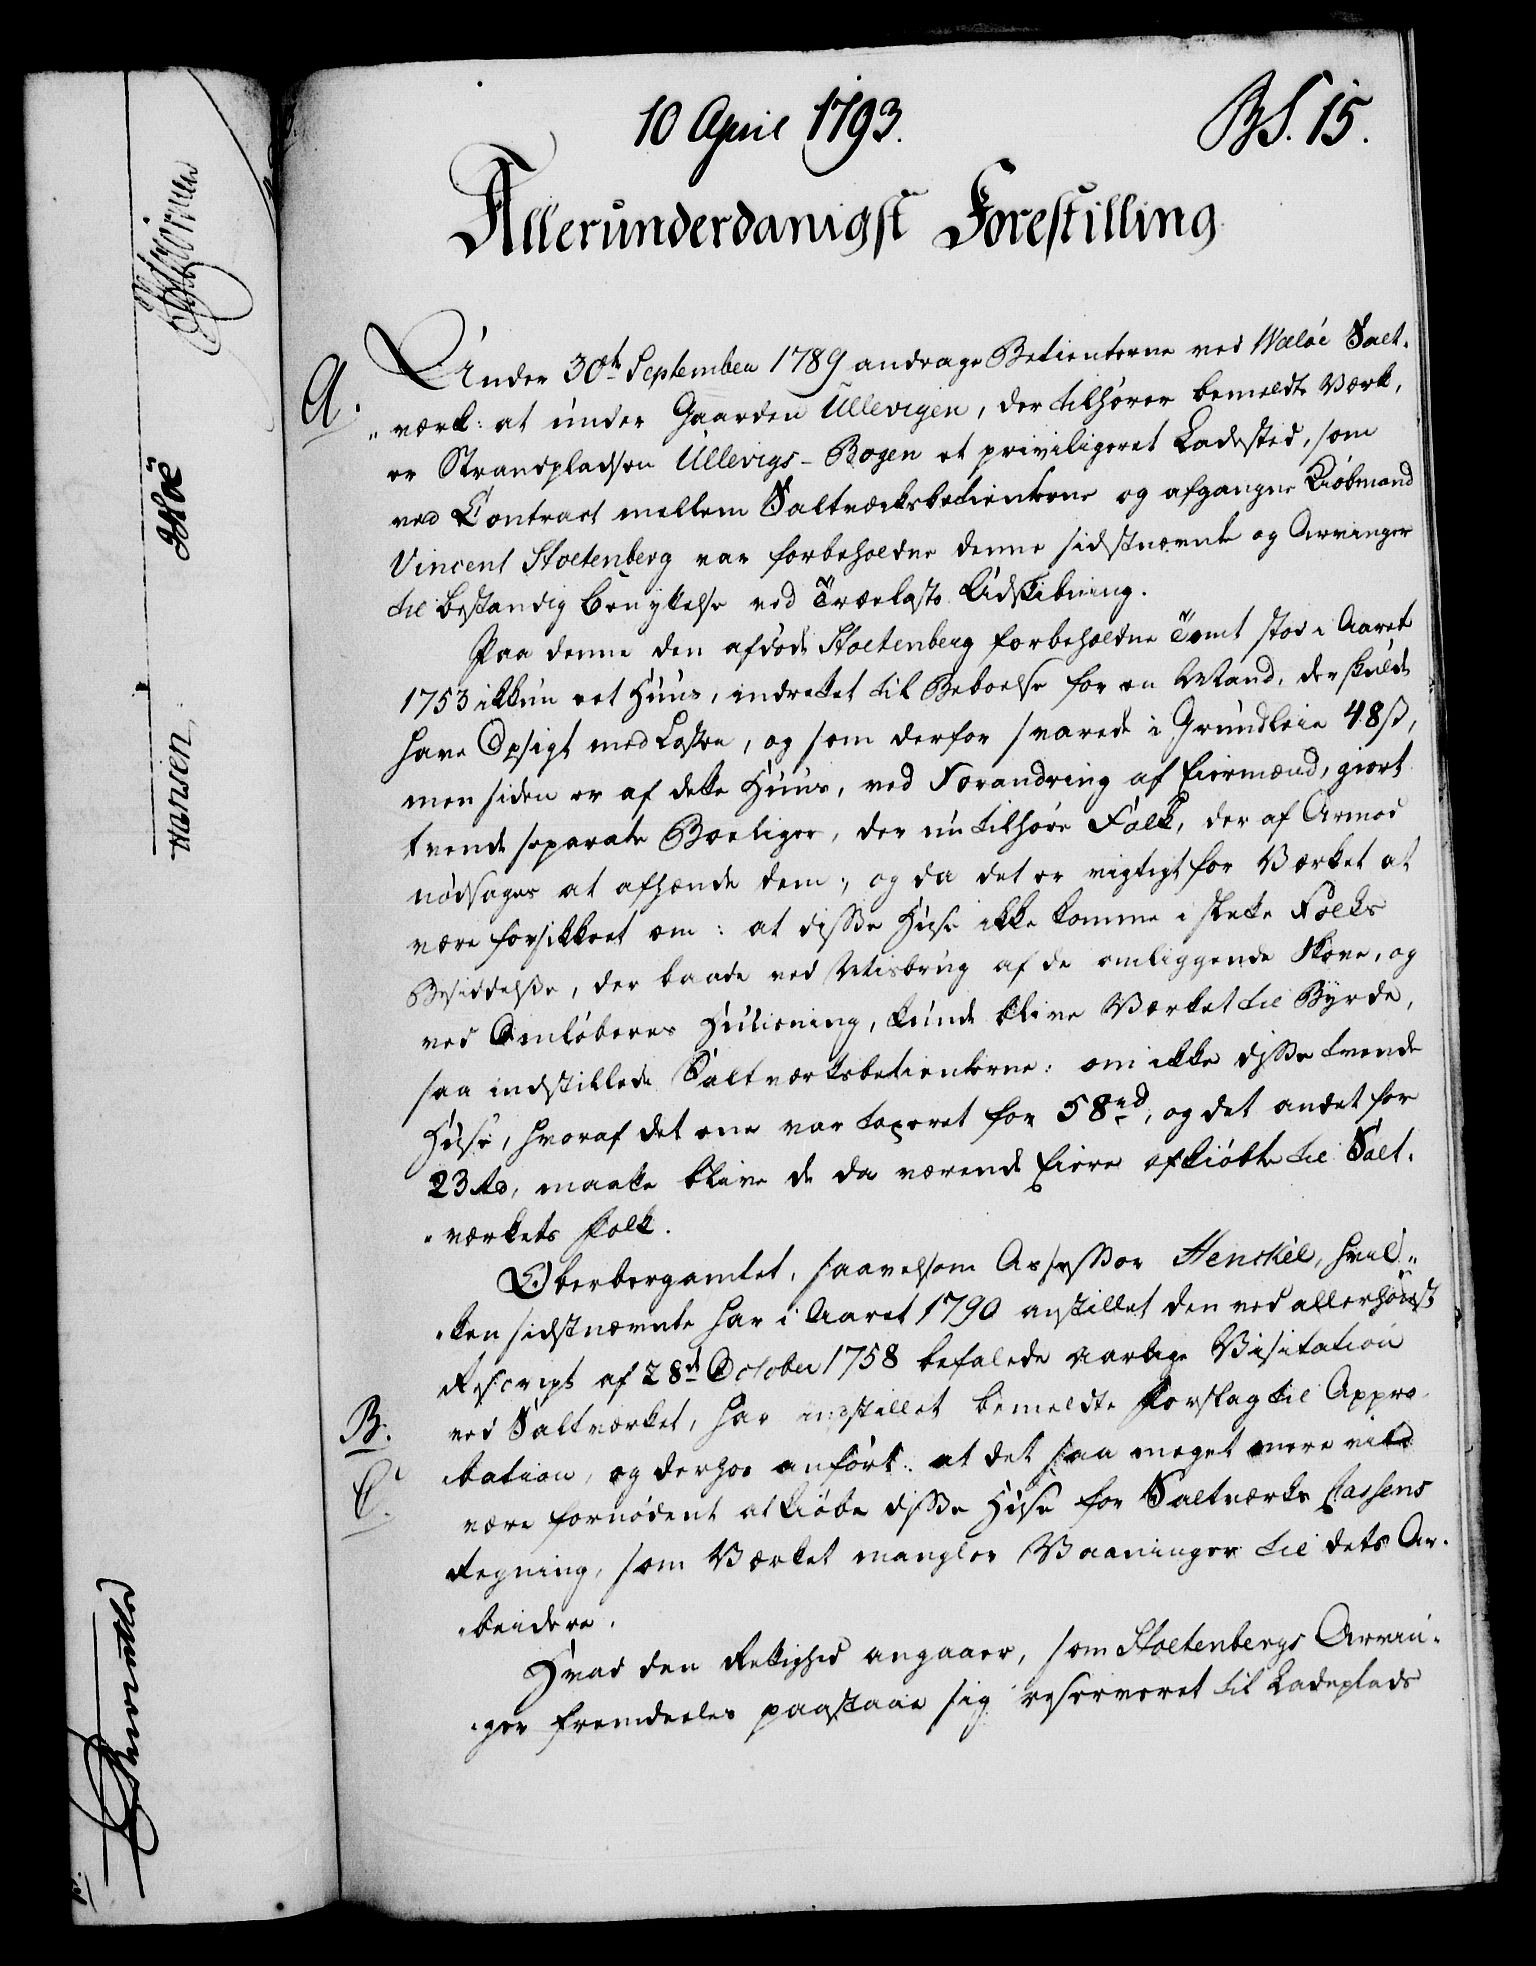 10 April 1793.
BS. 15.
Allerunderdanigst Forestilling
A.
Under 30te September 1789 andrage Betienterne ved Walöe Salt-
„værk: at under Gaarden Ullevigen, der tilhører bemeldte Værk,
er Strandpladsen Ullevigs-Bogen et priviligeret Ladested, som
ved Contract mellem Saltværksbetienterne og afgangne Kiöbmand
Vincent Stoltenberg var forbeholdne denne sidstnævnte og Arvinger
til bestandig Benyttelse ved Trælasts Udskibning.
Paa denne den afdöde Stoltenberg forbeholdne Tomt stod i Aaret
1753 ikkun eet Huus, indrettet til Beboelse for en Mand, der skulde
have Opsigt med Lasten, og som derfor svarede i Grundleie 48 ß,
men siden er af dette Huus, ved Forandring af Eiermænd, giort
tvende separate Boeliger, der nu tilhöre Folk, der af Armod
nödsages at afhænde dem; og da det er vigtigt for Værket at
være forsikkret om: at disse Huse ikke komme i slette Folks
Besiddelse, der baade ved Misbrug af de omliggende Skove, og
ved Omlöberes Huusning, kunde blive Værket til Byrde,
saa indstillede Saltværksbetienterne: om ikke disse tvende
Huse, hvoraf det ene var taxeret for 58 rd, og det andet for
23 rd, maatte blive de da værende Eiere afkiöbte til Salt-
„værkets Folk.
Oberbergamtet, saavelsom Assessor Henckel, hvil-
„ken sidstnævnte har i Aaret 1790 anstillet den ved allerhöiest
Rescript af 28de October 1758 befalede aarlige Visitation
B.
ved Saltværket, har indstillet bemeldte Forslag til Appro
C.
„bation, og derhos anfört: at det saa meget mere vilde
være fornödent at kiöbe disse Huse for Saltværks Cassens
Regning, som Værket mangler Vaaninger til dets Ar-
„beidere.
Hvad den Rettighed angaaer, som Stoltenbergs Arvin-
„ger fremdeeles paastaae sig reserveret til Ladeplads
Hansen